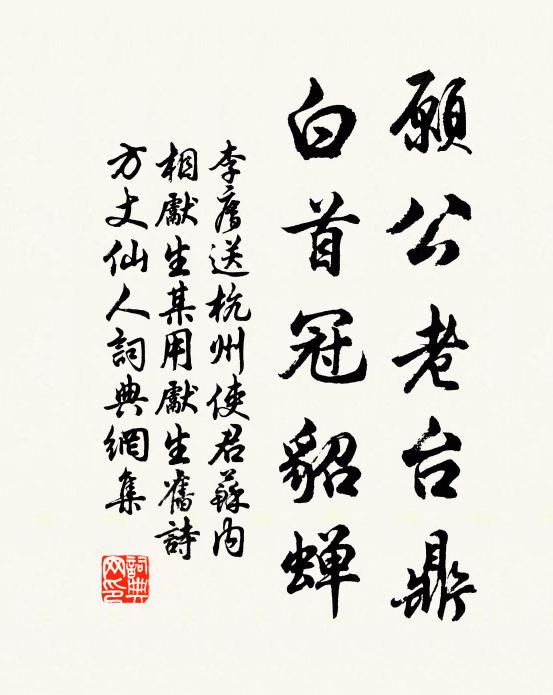 願公老台鼎
白首冠貂蝉
李廌送杭州使君蘇内
相獻生某用獻生舊詩
方丈仙人詞典網集
詞典
网印